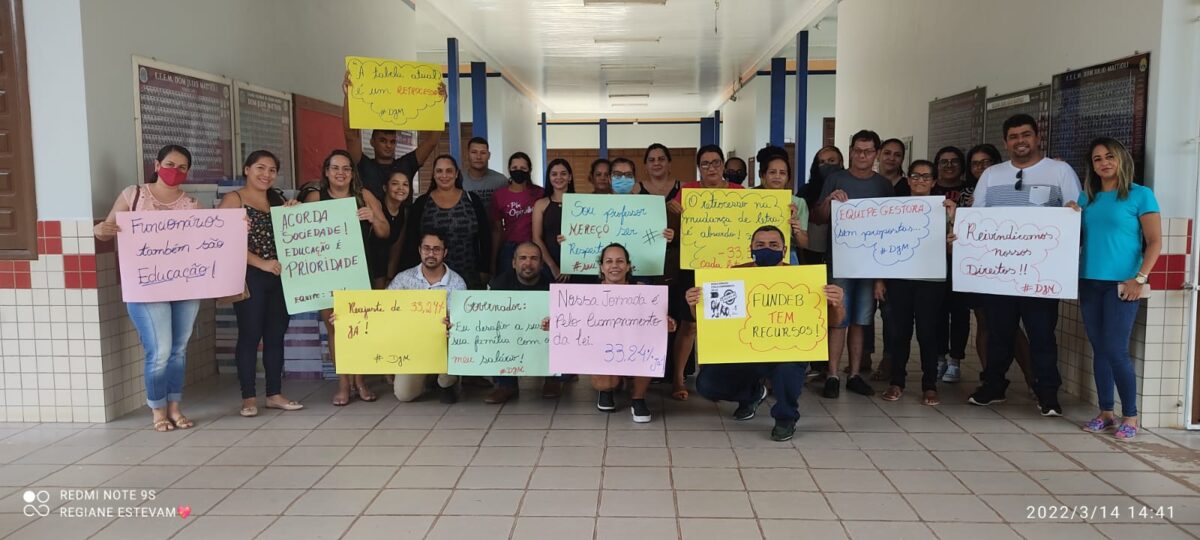 E.E.E.M. DOM JULIO MATTIOLI
"A tabela atual
é um RETROCESSO
#DJM
FUNCIONÁRIOS
também são
EDUCAÇÃO!
ACORDA
SOCIEDADE!
EDUCAÇÃO É
PRIORIDADE
EQUIPE:
Sou professor
MEREÇO ser
Respeitado
#
O retrocesso na
mudança de letra
é absurdo!
CADA
EQUIPE GESTORA
sem propostas...
#DJM
Reivindicamos
nossos
Direitos!!
#DJM
Reajuste de 33,24%
já!
#DJM
Governador:
Eu desafio a
sua família com o
meu salário!
#DJM
Nossa Jornada é
Pelo Cumprimento
da lei
33,24%
FUNDEB
TEM
RECURSOS!
REDMI NOTE 9S
REGIANE ESTEVAM
2022/3/14 14:41